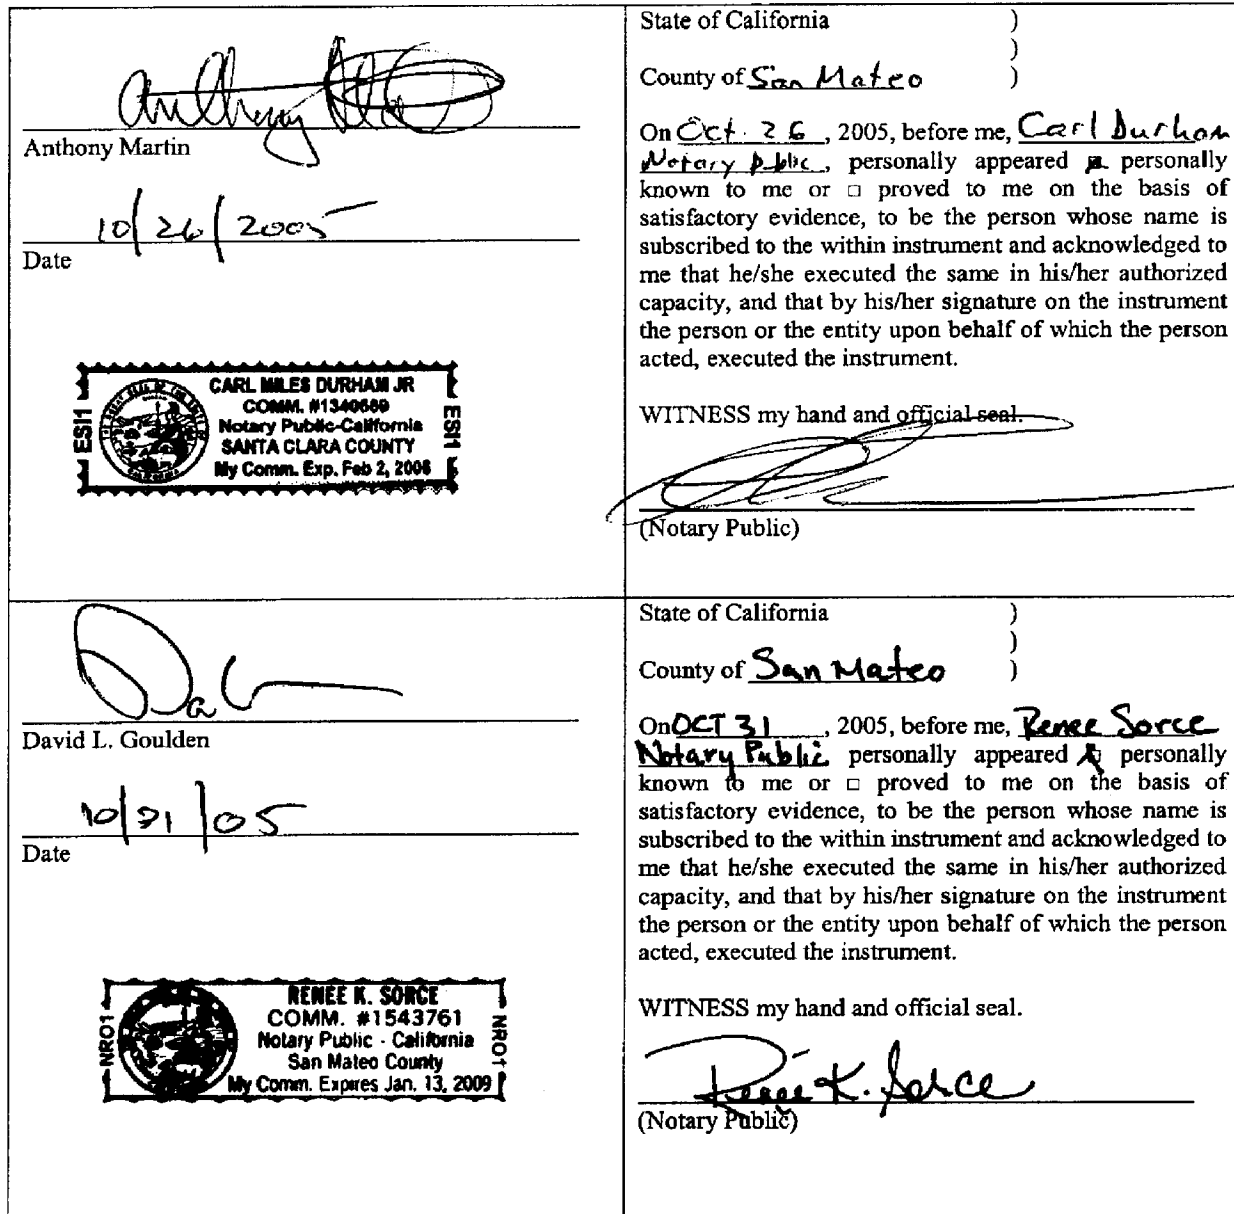 Anthony Martin
10/26/2005
Date
ESI1
CARL MILES DURHAM JR
COMM. #1340680
Notary Public-California
SANTA CLARA COUNTY
My Comm. Exp. Feb 2, 2006
ESI1
State of California )
)
County of San Mateo )
On Oct. 26, 2005, before me, Carl Durham
Notary Public, personally appeared personally
known to me or □ proved to me on the basis of
satisfactory evidence, to be the person whose name is
subscribed to the within instrument and acknowledged to
me that he/she executed the same in his/her authorized
capacity, and that by his/her signature on the instrument
the person or the entity upon behalf of which the person
acted, executed the instrument.
WITNESS my hand and official seal.
(Notary Public)
David L. Goulden
10/31/05
Date
NRO1
RENEE K. SORCE
COMM. #1543761
Notary Public - California
San Mateo County
My Comm. Expires Jan. 13, 2009
NRO1
State of California )
)
County of San Mateo )
On OCT 31, 2005, before me, Renee Sorce
Notary Public personally appeared personally
known to me or □ proved to me on the basis of
satisfactory evidence, to be the person whose name is
subscribed to the within instrument and acknowledged to
me that he/she executed the same in his/her authorized
capacity, and that by his/her signature on the instrument
the person or the entity upon behalf of which the person
acted, executed the instrument.
WITNESS my hand and official seal.
Renee K. Sorce
(Notary Public)